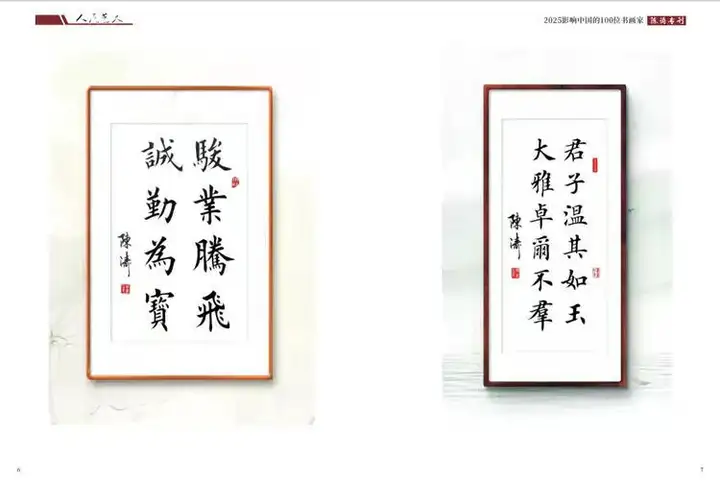 2025影响中国的100位书画家 陈涛专刊
駿業騰飛
誠勤為寶
陳濤
君子温其如玉
大雅卓爾不羣
陳濤
6
7